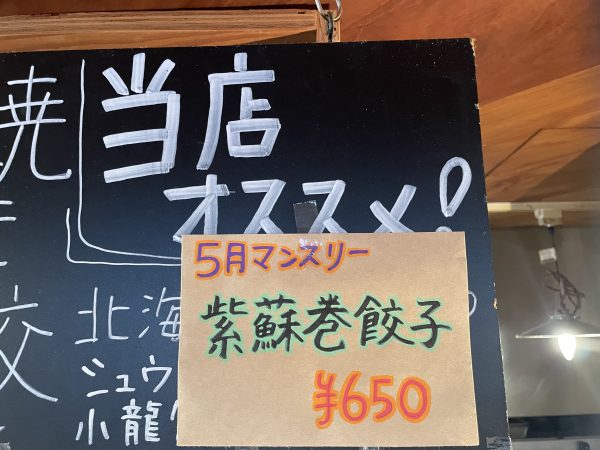 当店
オススメ!
5月マンスリー
紫蘇巻餃子
¥650
北海
シュウ
小龍
焼
餃